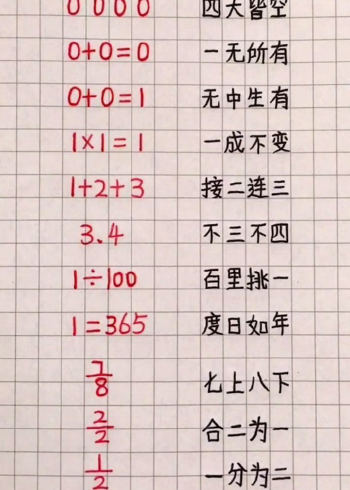 0 0 0 0 四大皆空
0+0=0 一无所有
0+0=1 无中生有
1×1=1 一成不变
1+2+3 接二连三
3.4 不三不四
1÷100 百里挑一
1=365 度日如年
7/8 七上八下
2/2 合二为一
1/2 一分为二